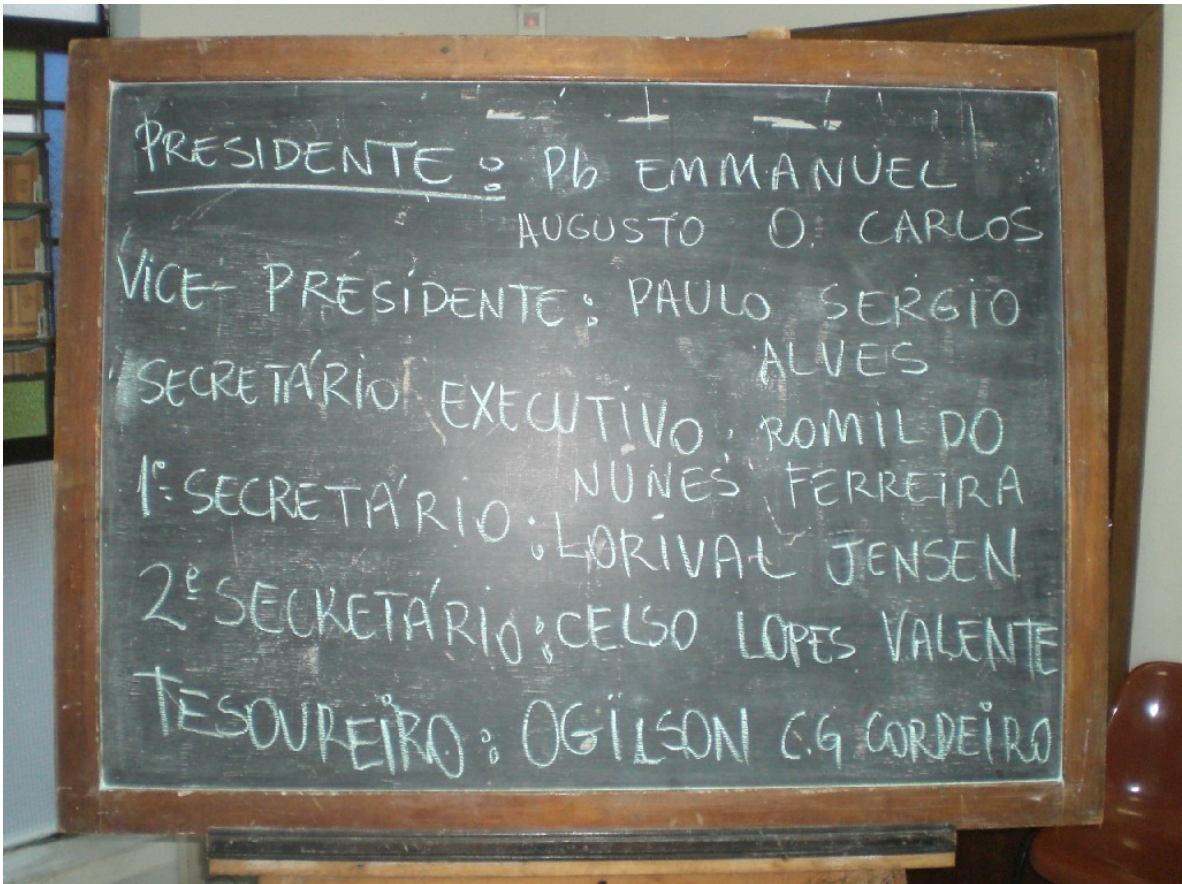 PRESIDENTE: Pb EMMANUEL
AUGUSTO O. CARLOS
VICE-PRESIDENTE: PAULO SERGIO
ALVES
SECRETÁRIO EXECUTIVO: ROMILDO
NUNES FERREIRA
1º SECRETÁRIO: LORIVAL JENSEN
2º SECRETÁRIO: CELSO LOPES VALENTE
TESOUREIRO: OGILSON C.G CORDEIRO